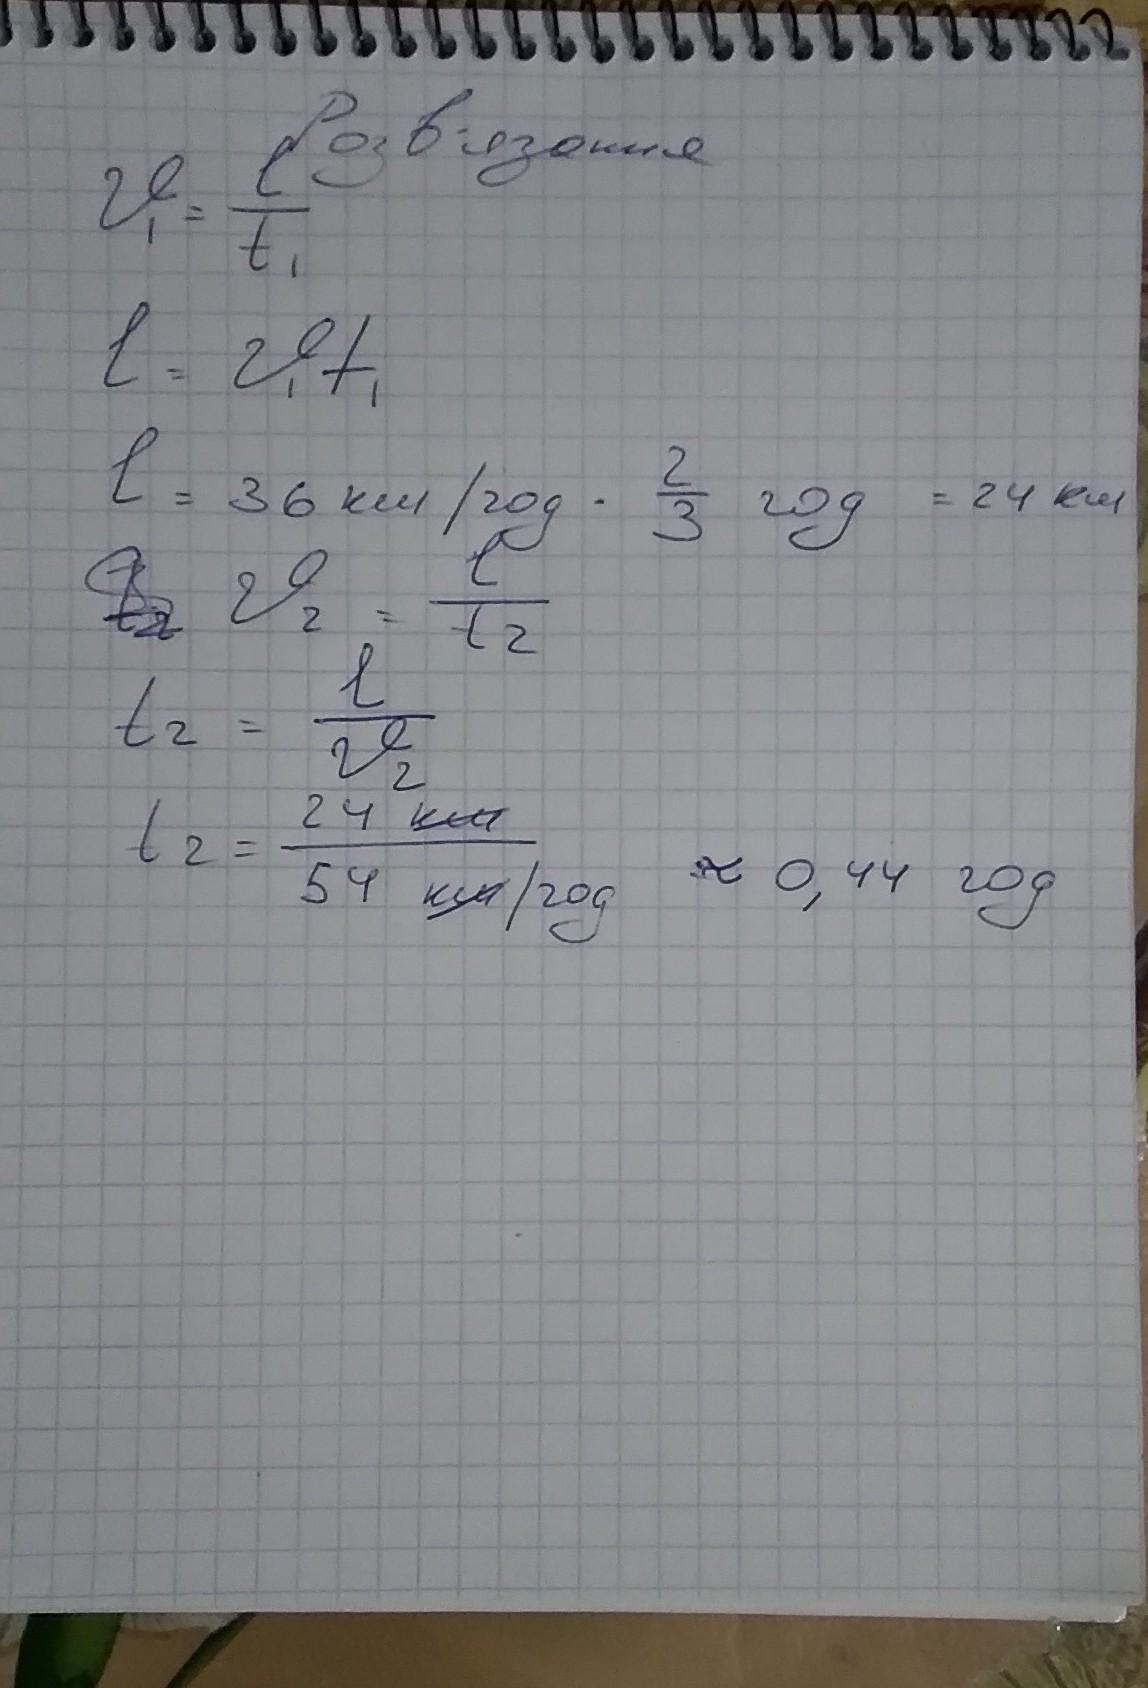 Розв'язання
v₁ = l/t₁
l = v₁t₁
l = 36 км/год · 2/3 год = 24 км
v₂ = l/t₂
t₂ = l/v₂
t₂ = 24 км / 54 км/год ≈ 0,44 год